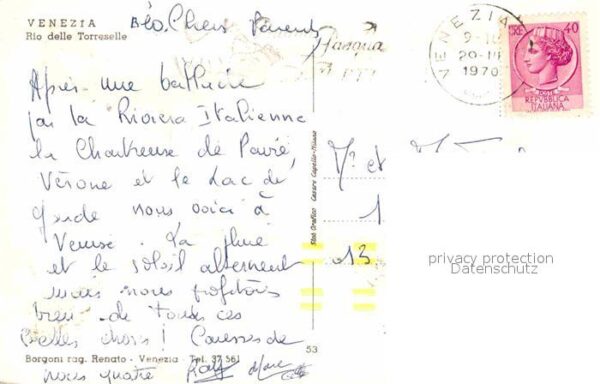 VENEZIA
Rio delle Torreselle
Chers Parents
Pasqua
VENEZIA
9-10
1970
LIRE 40
REPVBBLICA
ITALIANA
Après une
par la Riviera Italienne
la Chartreuse de Pavie,
Vérone et le Lac de
Garde nous voici à
Venise. La pluie
et le soleil alternent
mais nous profitons
bien de toutes ces
belles choses! Caresses de
nous quatre
Borgoni rag. Renato - Venezia - Tel. 37 561
53
Stab. Grafico Cesare Capello - Milano
Mr et
1
013
privacy protection
Datenschutz